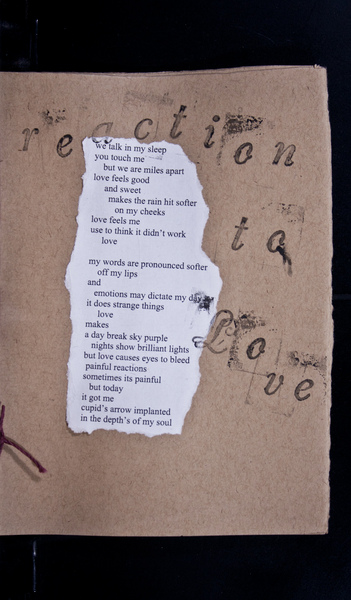 reaction
to
Love
we talk in my sleep
you touch me
but we are miles apart
love feels good
and sweet
makes the rain hit softer
on my cheeks
love feels me
use to think it didn't work
love
my words are pronounced softer
off my lips
and
emotions may dictate my day
it does strange things
love
makes
a day break sky purple
nights show brilliant lights
but love causes eyes to bleed
painful reactions
sometimes its painful
but today
it got me
cupid's arrow implanted
in the depth's of my soul